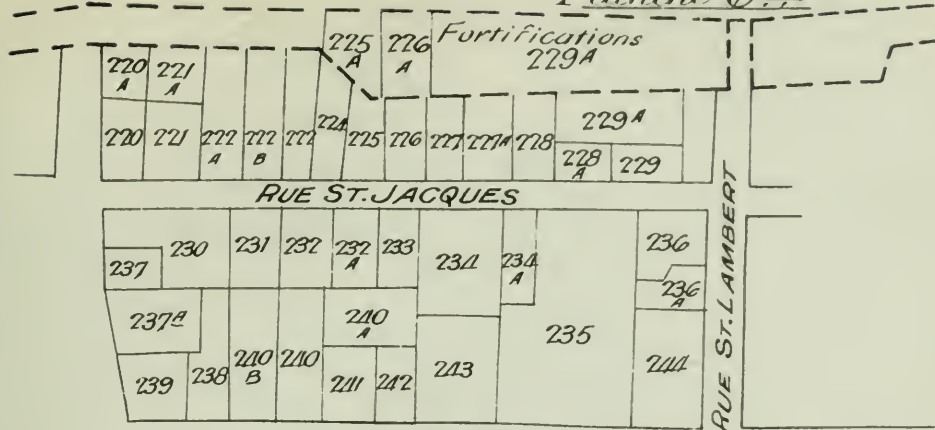 225
A
226
A
Fortifications
229A
220
A
221
A
220
221
222
A
222
B
222
224
225
226
227
227A
228
229A
228
A
229
RUE ST. JACQUES
RUE ST. LAMBERT
230
231
232
232
A
233
234
234
A
235
236
236
A
237
237A
238
239
240
B
240
240
A
241
242
243
244